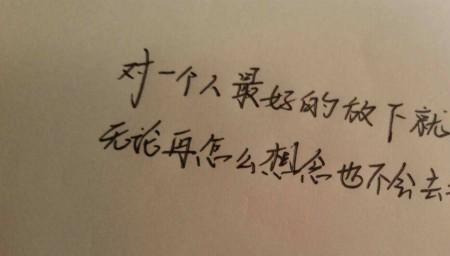 对一个人最好的放下就
无论再怎么想念也不会去